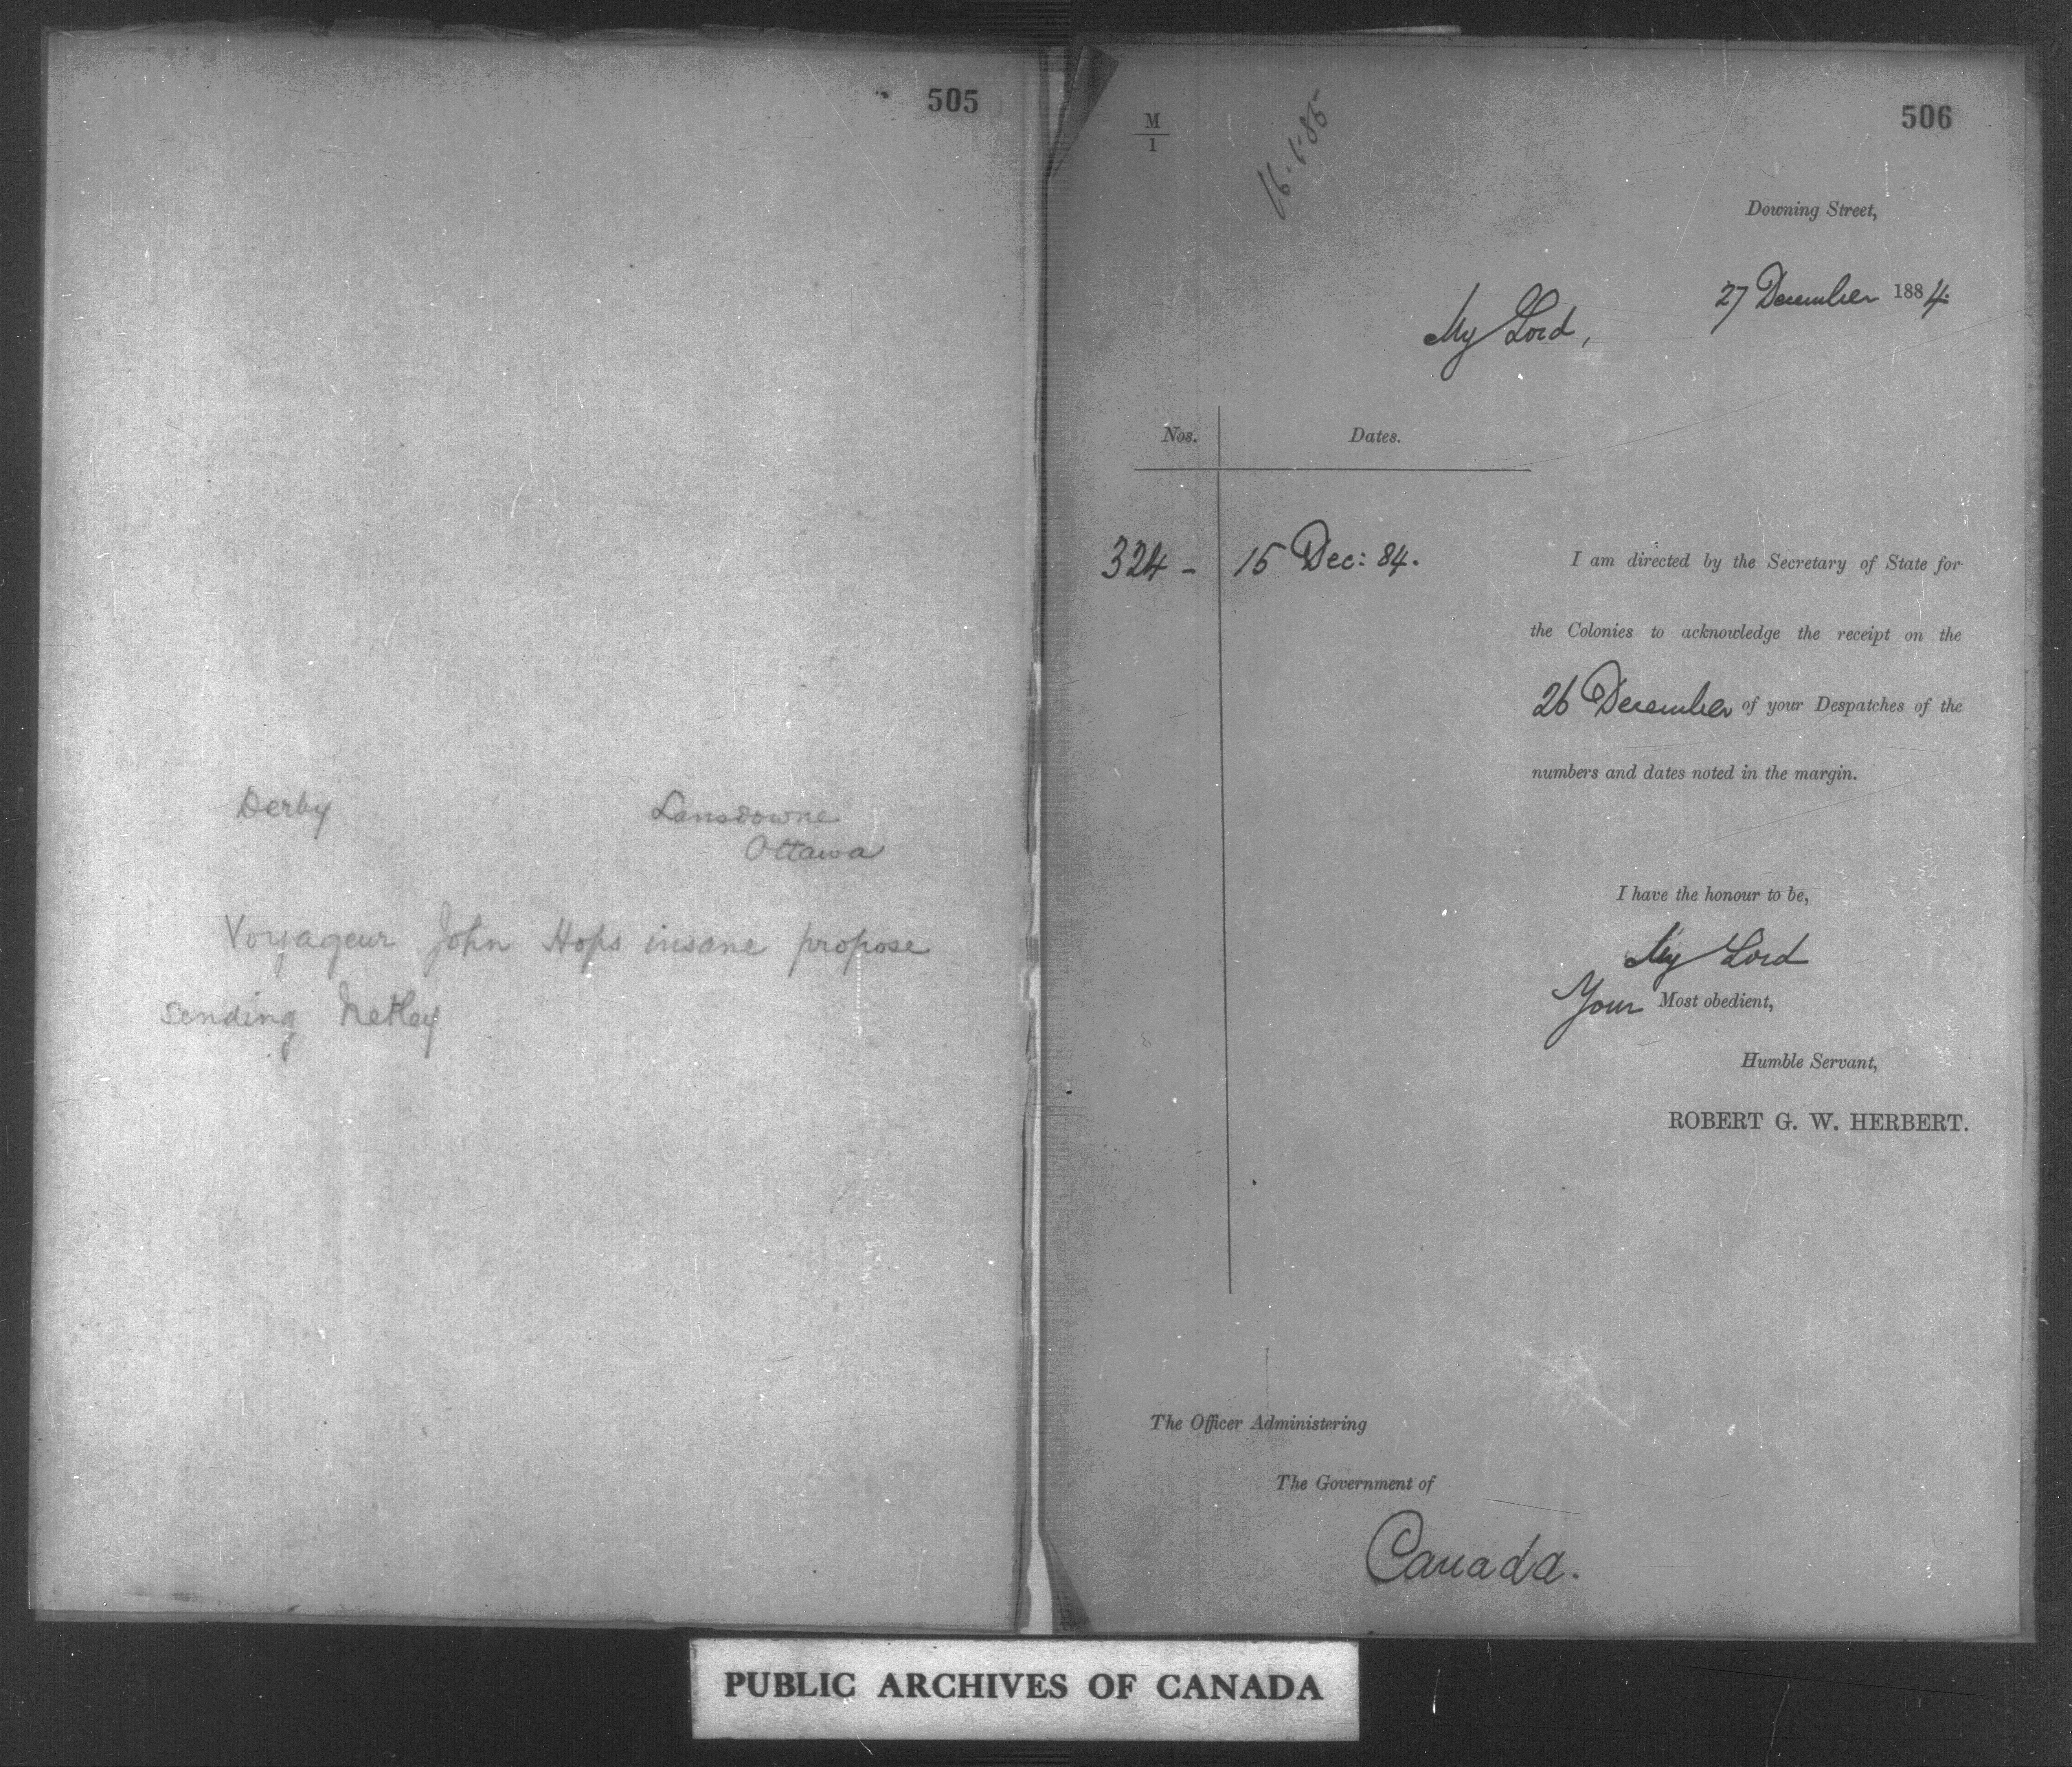 505
Derby
Lansdowne
Ottawa
Voyageur John Hops insane propose
sending Netley
506
M
1
16.1.85
Downing Street,
27 December 1884.
My Lord,
Nos. Dates.
324 - 15 Dec: 84.
I am directed by the Secretary of State for
the Colonies to acknowledge the receipt on the
26 December of your Despatches of the
numbers and dates noted in the margin.
I have the honour to be,
My Lord
Your Most obedient,
Humble Servant,
ROBERT G. W. HERBERT.
The Officer Administering
The Government of
Canada.
PUBLIC ARCHIVES OF CANADA